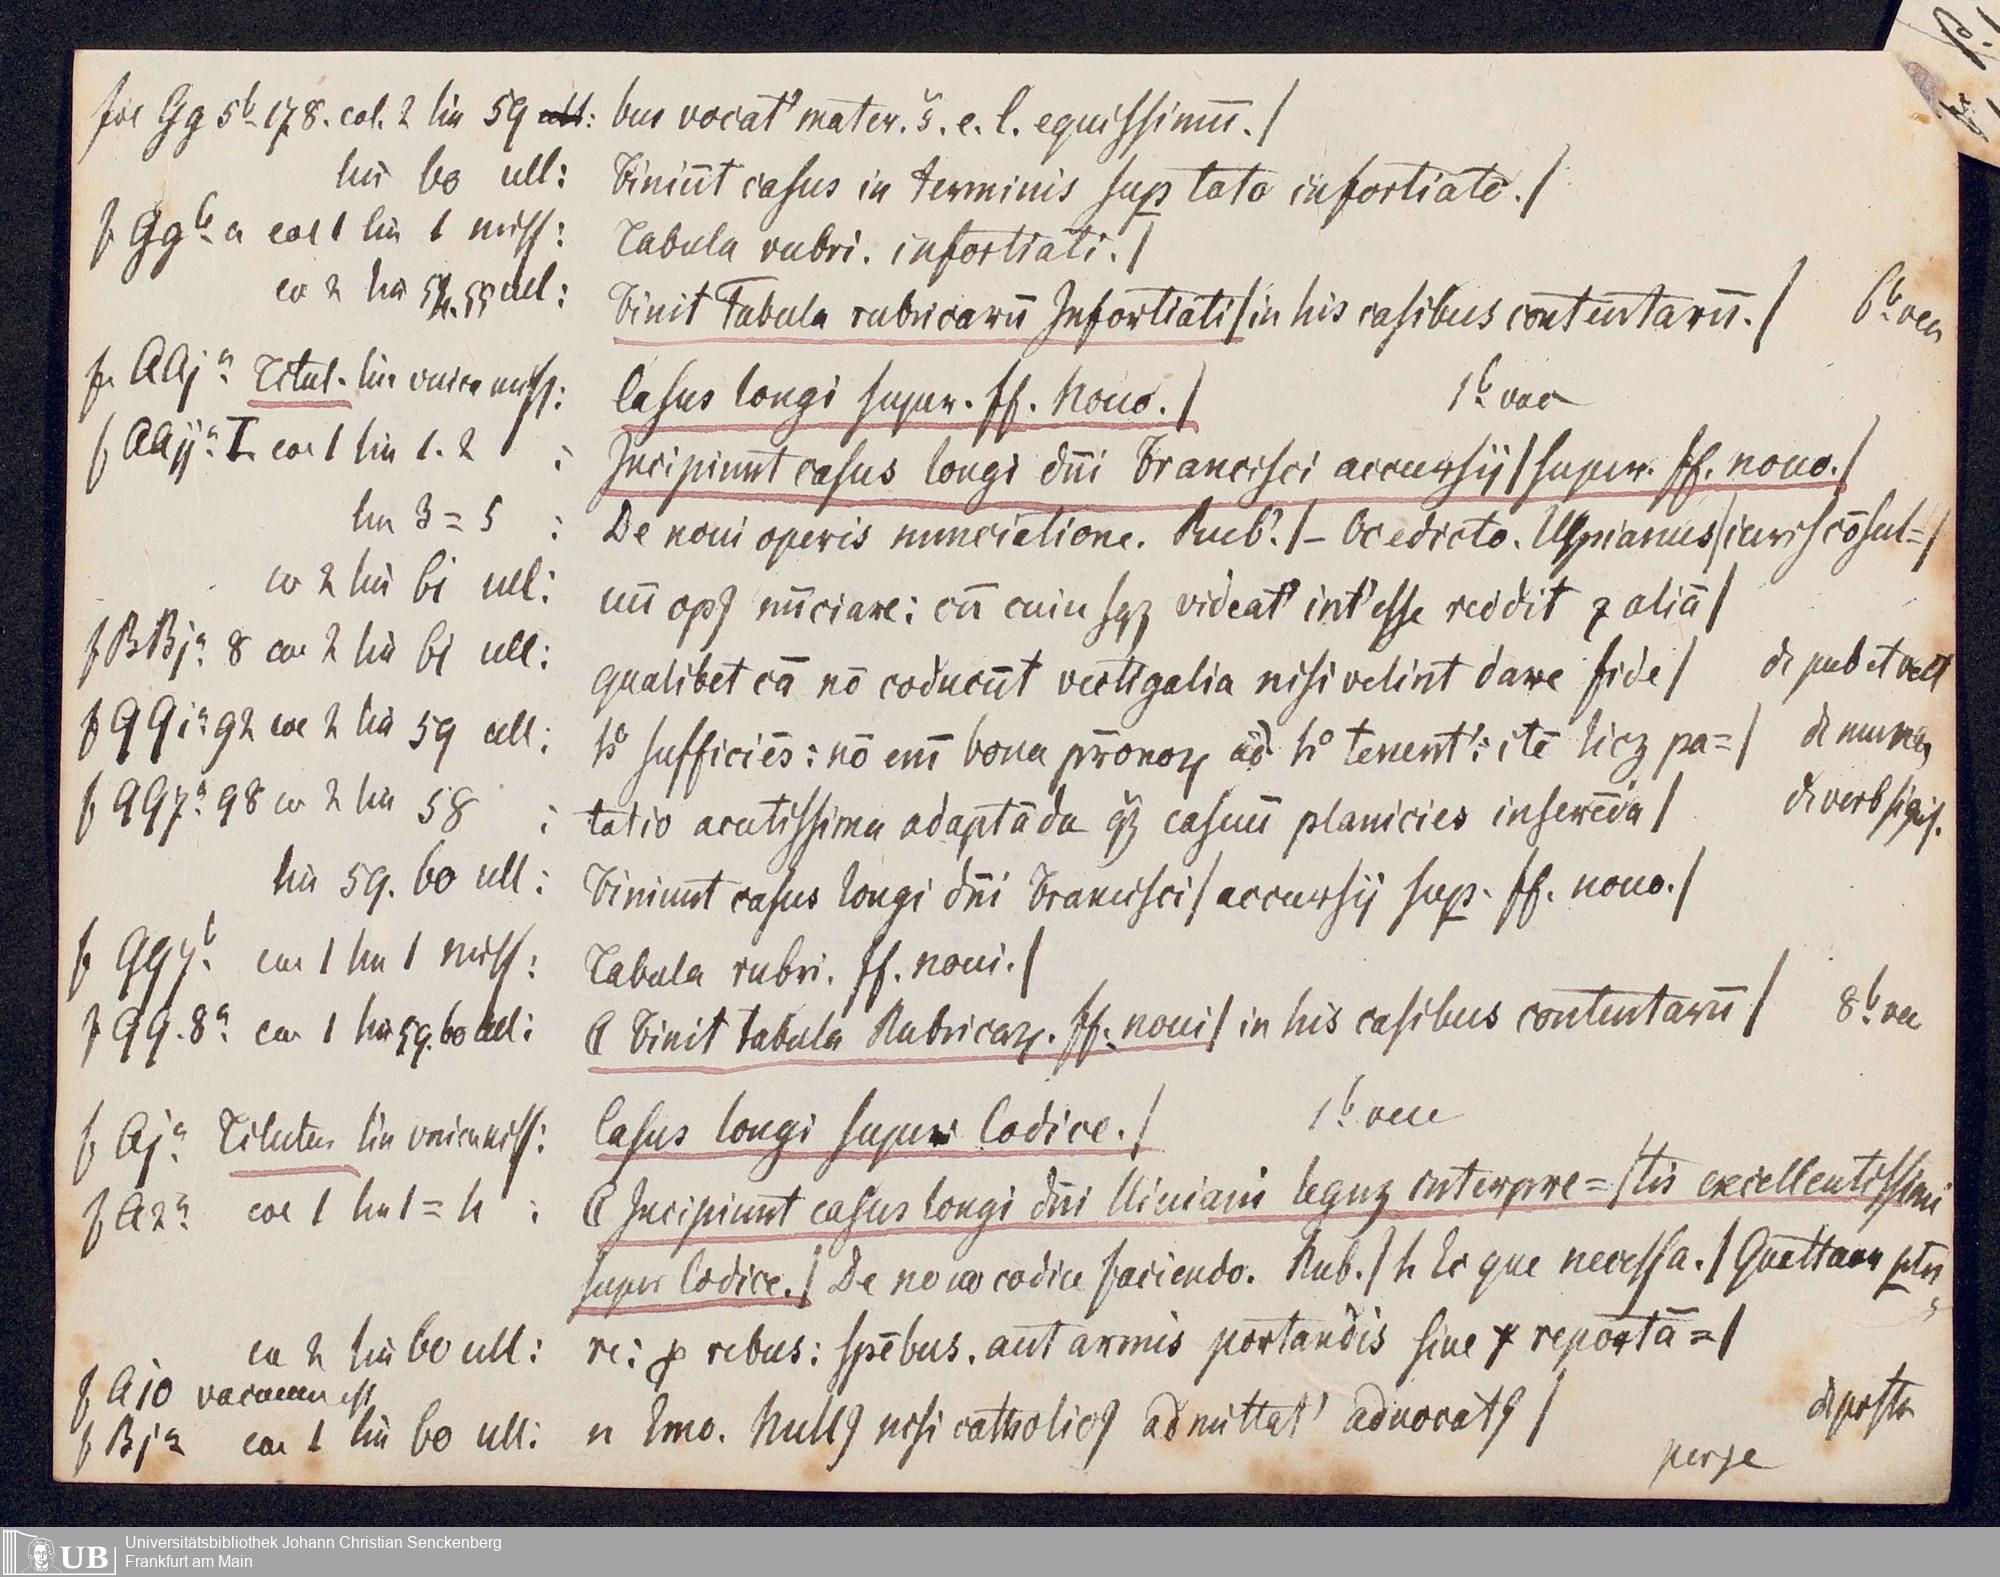 fol Gg 5b 178. col. 2 lin 59 : bus vocat' mater. s̄. e. l. equissimū. /
lin 60 ult: Finiūt casus in terminis sup toto infortiato. /
f Gg 6 a col 1 lin 1 miss: Tabula rubri. infortiati. /
co 2 lin 54. 55 ult: Finit Tabula rubricarū Infortiati / in his casibus contentarū. / 6b vac
f AAj a Titul. lin vnica miss: Casus longi super. ff. Nouo. / 1b vac
f AAij a I col 1 lin 1. 2 : Incipiunt casus longi dn̄i Francisci accursij / super. ff. nouo. /
lin 3 = 5 : De noui operis nunciatione. Rub'. / – Oc edicto. Ulpianus / iuris cōsul= /
co 2 lin 61 ult: nū opꝰ nūciare: cū cuiusqꝫ videat' int'esse reddit ꝛ aliā /
f BBj a 8 col 2 lin 61 ult: qualibet cā nō cōducūt vectigalia nisi velint dare fide / de pub et vect
f QQi a 92 col 2 lin 59 ult: h° sufficiēs: nō enī bona pr̄onoꝝ ad h° tenent': itē licꝫ pa= / de mune
f QQ7 a 98 co 2 lin 58 : tatio acutissima adaptāda qꝫ casuū planicies inserēda / de verb signif.
lin 59. 60 ult: Finiunt casus longi dn̄i Francisci / accursij sup. ff. nouo. /
f QQ7 b col 1 lin 1 miss: Tabula rubri. ff. noui. /
f QQ. 8 a col 1 lin 59. 60 ult: C Finit tabula Rubricaꝝ. ff. noui / in his casibus contentarū / 8b vac
f Aj a Titulus lin vnica miss: Casus longi super Codice. / 1b vac
f A2 a col 1 lin 1 = 4 : C Incipiunt casus longi dn̄i Uiuiani leguꝫ interpre= / tis excellentissimi
super Codice. / De nouo codice faciendo. Rub. / h Ec que necessa. /
co 2 lin 60 ult: re: ꝓ rebus: spēbus. aut armis portandis siue ꝛ reportā= /
f A 10 vacuum est
f Bj a col 1 lin 60 ult: n Emo. Nullꝰ nisi catholicꝰ admittat' aduocatꝰ / de postu
perge
Universitätsbibliothek Johann Christian Senckenberg
UB Frankfurt am Main